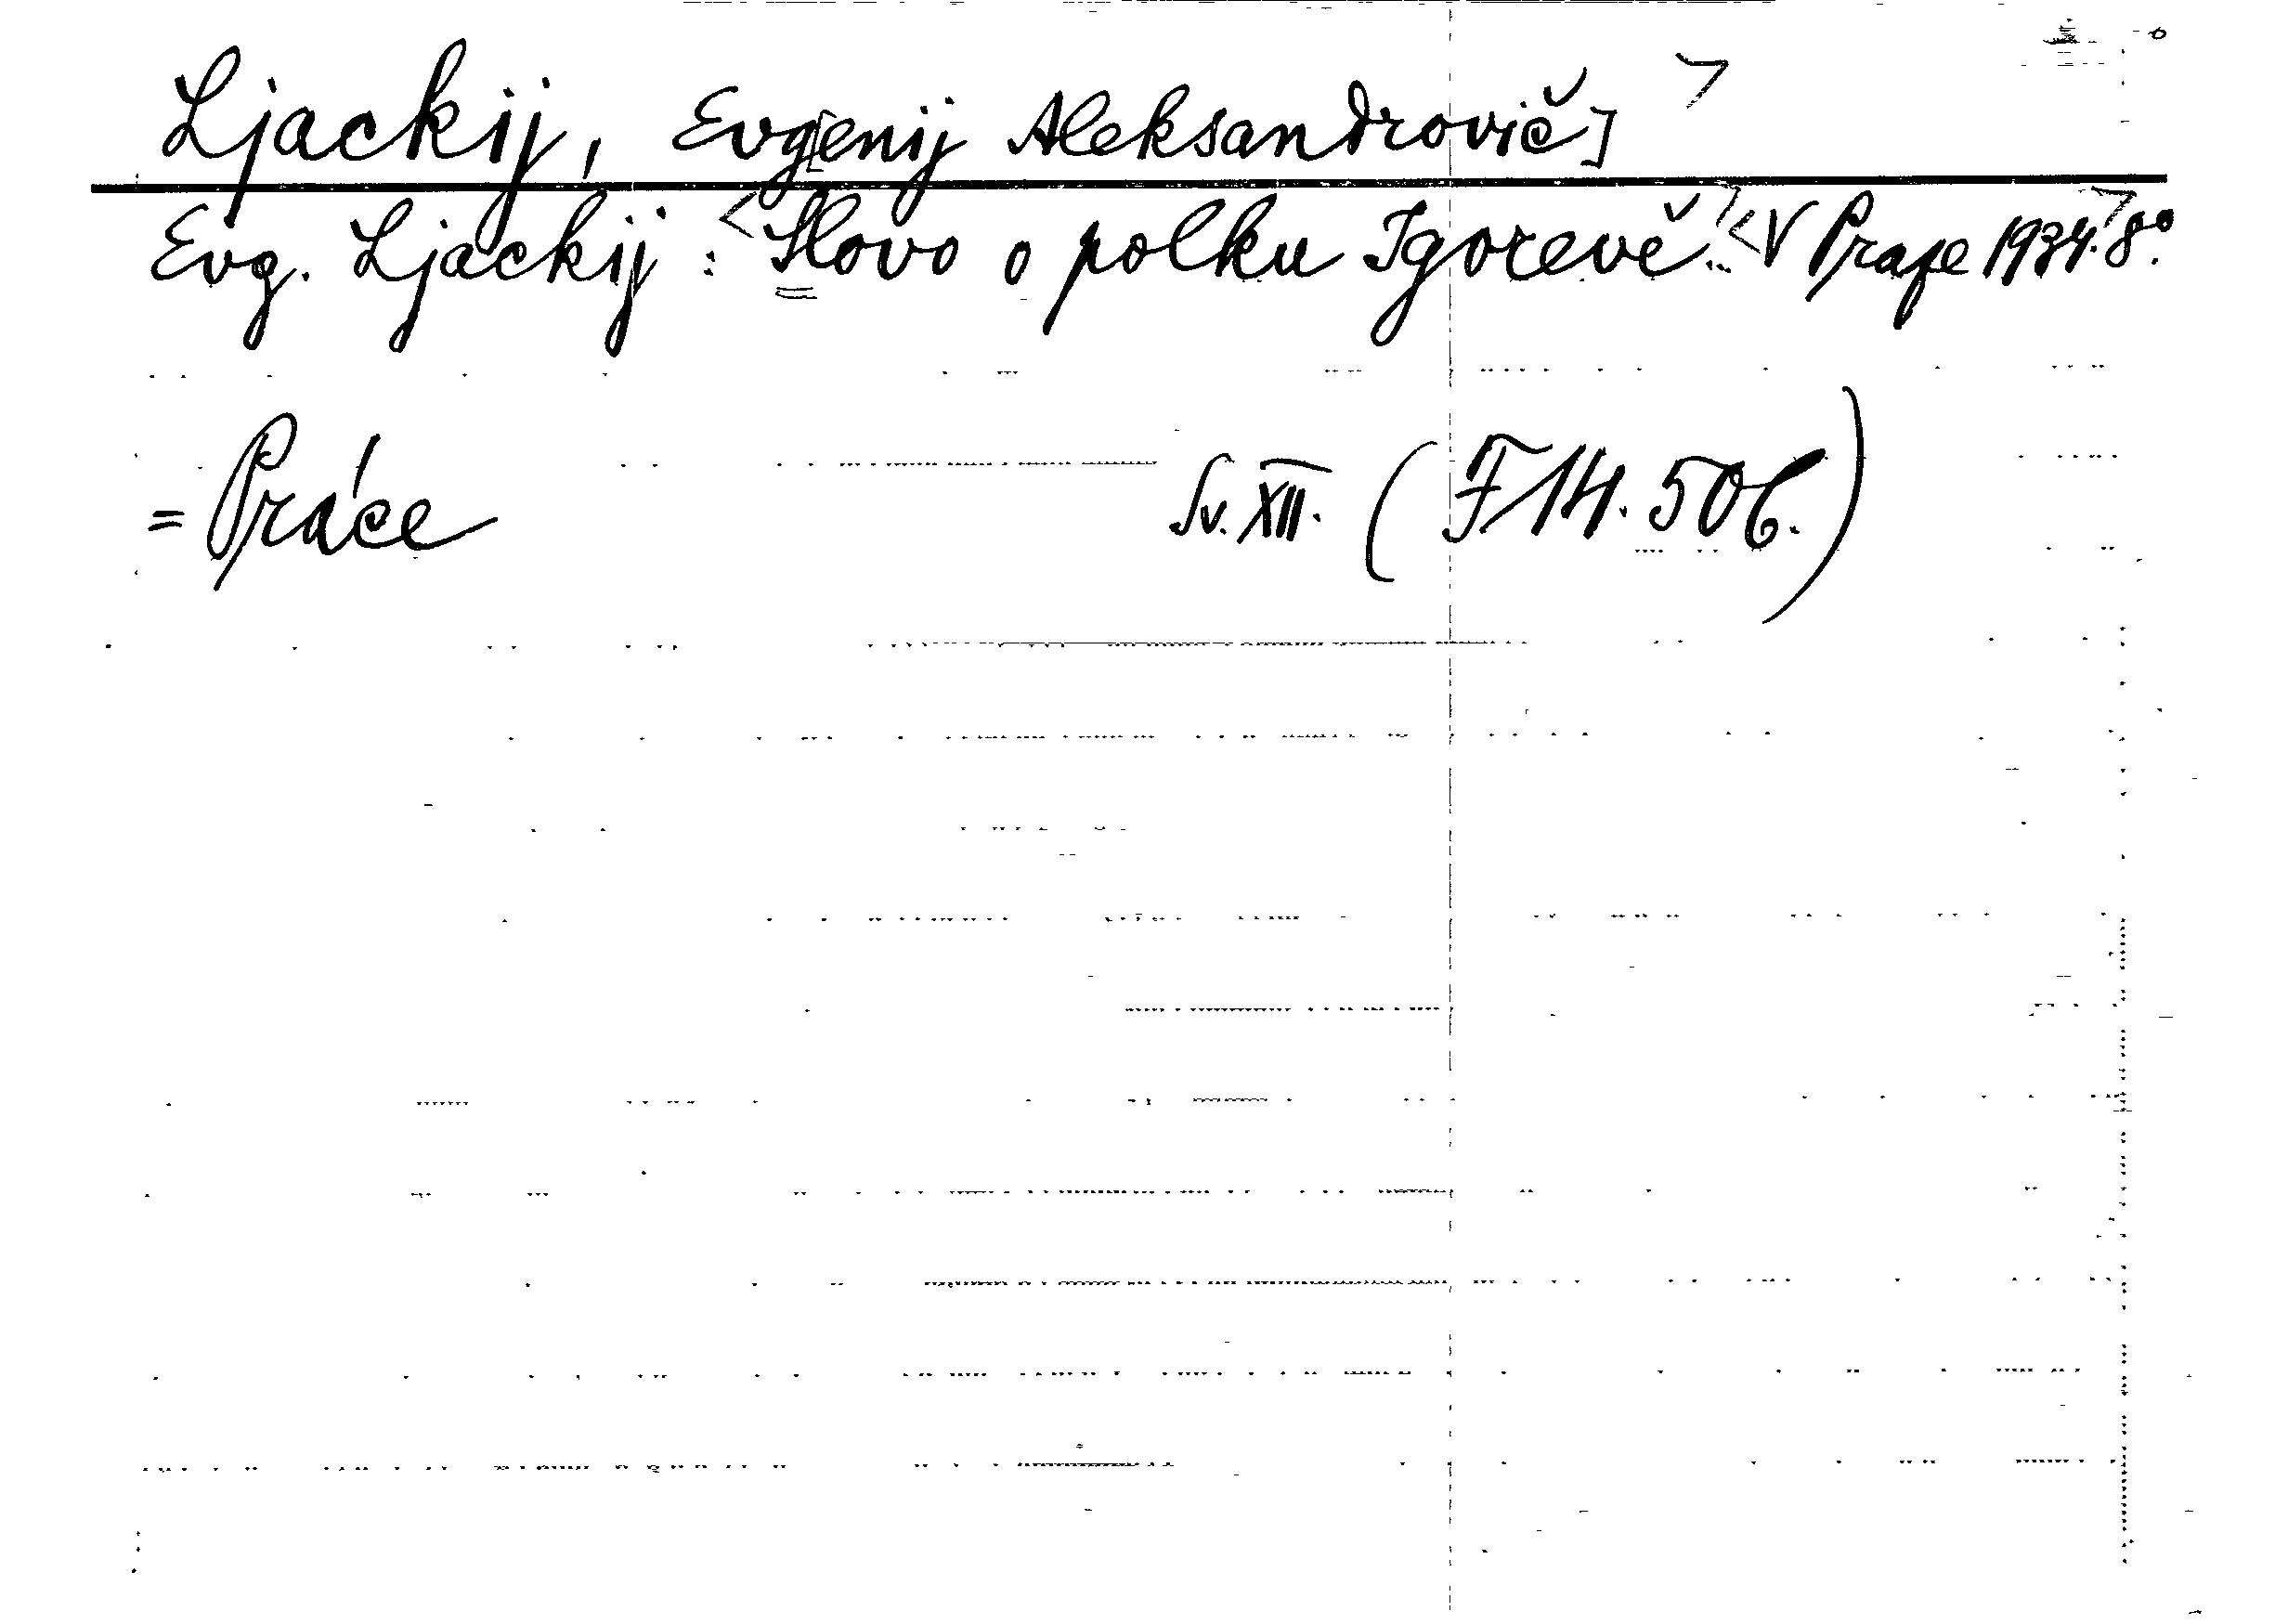 Ljackij, Evg[enij Aleksandrovič]>
Evg. Ljackij: <Slovo o polku Igorevě..> <V Praze 1934.> 8°.
= Práce Sv. XII. (F 14.506.)